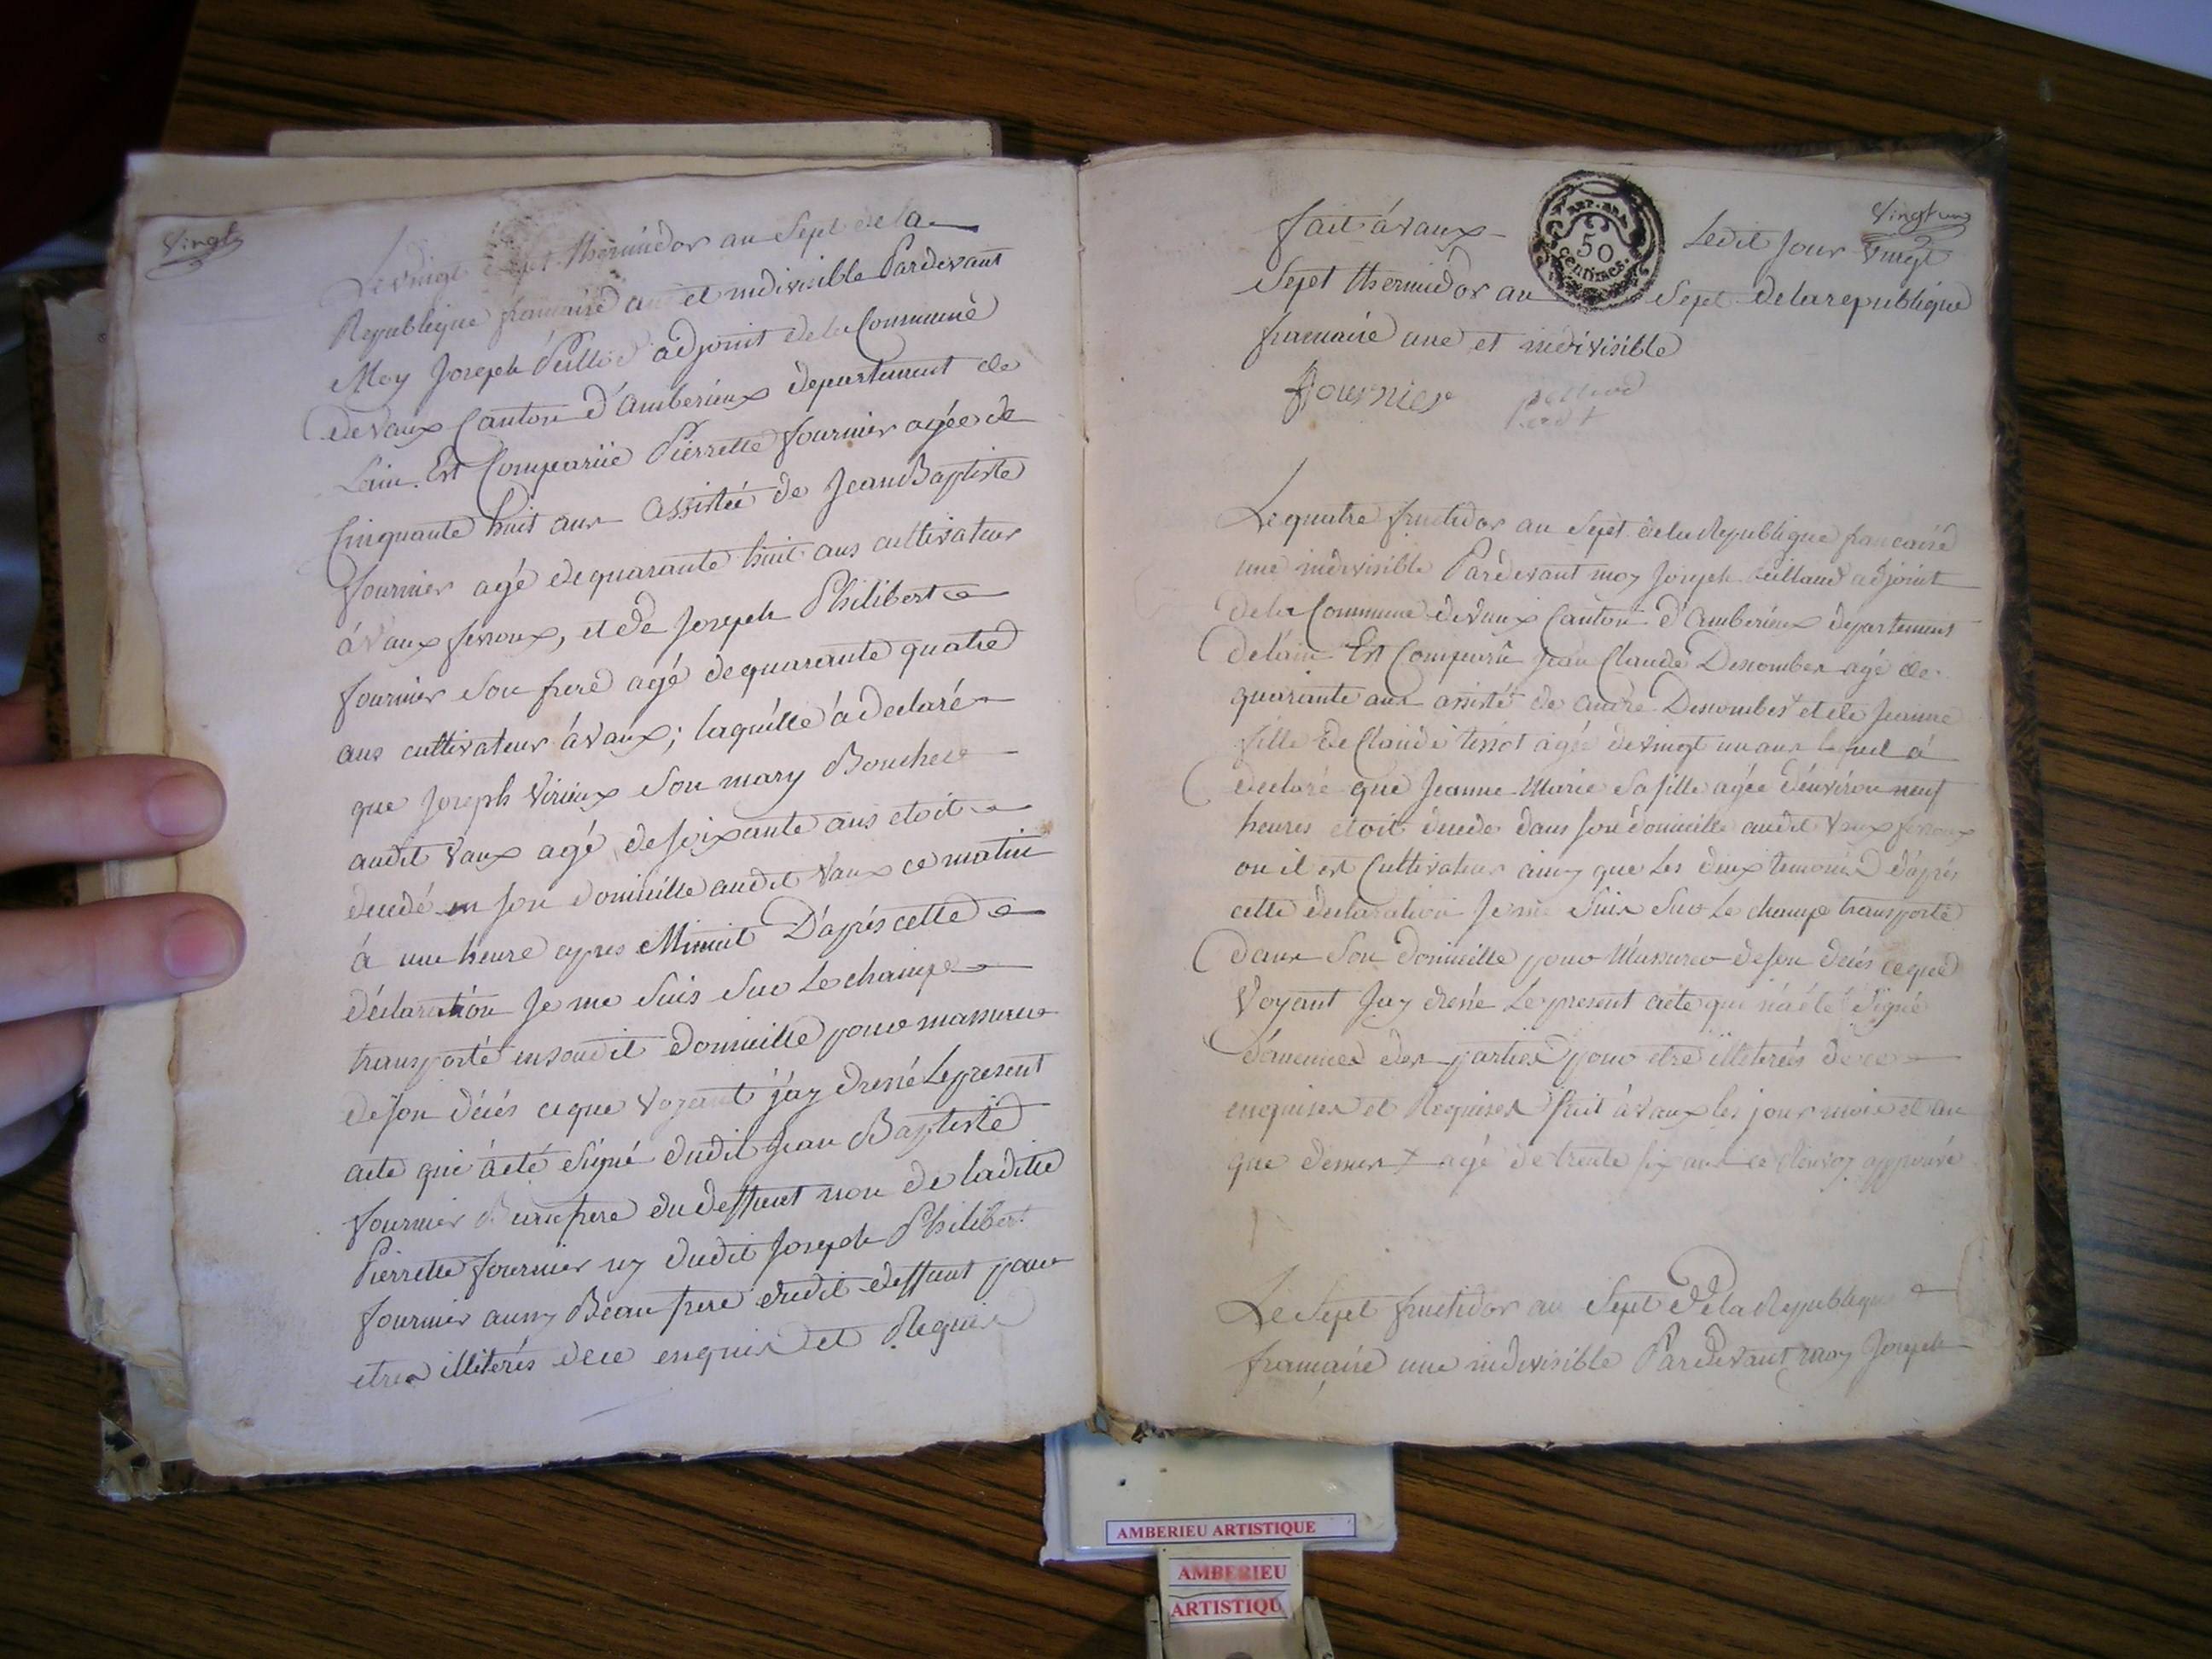 Vingt
Le vingt Sept thermidor an Sept de la
Republique francaise une et indivisible Pardevant
Moy Joseph adjoint de la Commune
de Vaux Canton d'amberieux departement de
Lain. Est Comparüe Pierrette fournier agée de
Cinquante huit ans assistée de Jean Baptiste
fournier agé de quarante huit ans cultivateur
á Vaux fevroux, et de Joseph Philibert
fournier Son frere agé de quarante quatre
ans cultivateur á vaux; laquelle á declaré
que Joseph Virieux Son mary Boucher
audit Vaux agé de soixante ans etoit
decedé en son domicille audit Vaux ce matin
á une heure apres Minuit D'aprés cette
déclaration Je me Suis Sur Le champ
transporté en soudit domicille pour massurer
de son décés ce que Voyant j'ay dressé Le present
acte qui á eté Signé dudit Jean Baptiste
fournier Beaufrere du deffunt non de laditte
Pierrette fournier ny dudit Joseph Philibert
fournier aussy Beau frere dudit deffunt pour
etre illiterés de ce enquis et Requis
Vingt un
fait á vaux Ledit Jour Vingt
REP. FRA.
50
centimes.
Sept thermidor an Sept de la republique
francaise une et indivisible
fournier
Le quatre fructidor an Sept de la Republique francaise
une indivisible Pardevant moy Joseph adjoint
de la Commune de Vaux Canton d'Amberieux departement
de l'ain Est Comparû Jean Claude Descombes agé de
quarante ans assisté de andré Descombes + et de Jeanne
fille de Claude tissot agée de vingt un ans lequel á
declaré que Jeanne Marie Sa fille agée d'environ neuf
heures etoit decede dans son domicille audit Vaux fevroux
ou il est Cultivateur ainsy que Les deux temoins D'aprés
cette declaration Je me Suis Sur Le champ transporté
dans Son domicille pour M'assurer de son décés ce que
Voyant Jay dressé Le present acte qui n'a eté Signé
d'aucunes des parties pour etre illiterés de ce
enquises et Requises fait á vaux les jour mois et an
que dessus + agé de trente six ans ce Renvoy approuvé
Le Sept fructidor an Sept De la Republique
francaise une indivisible Pardevant moy Joseph
AMBERIEU ARTISTIQUE
AMBERIEU
ARTISTIQU